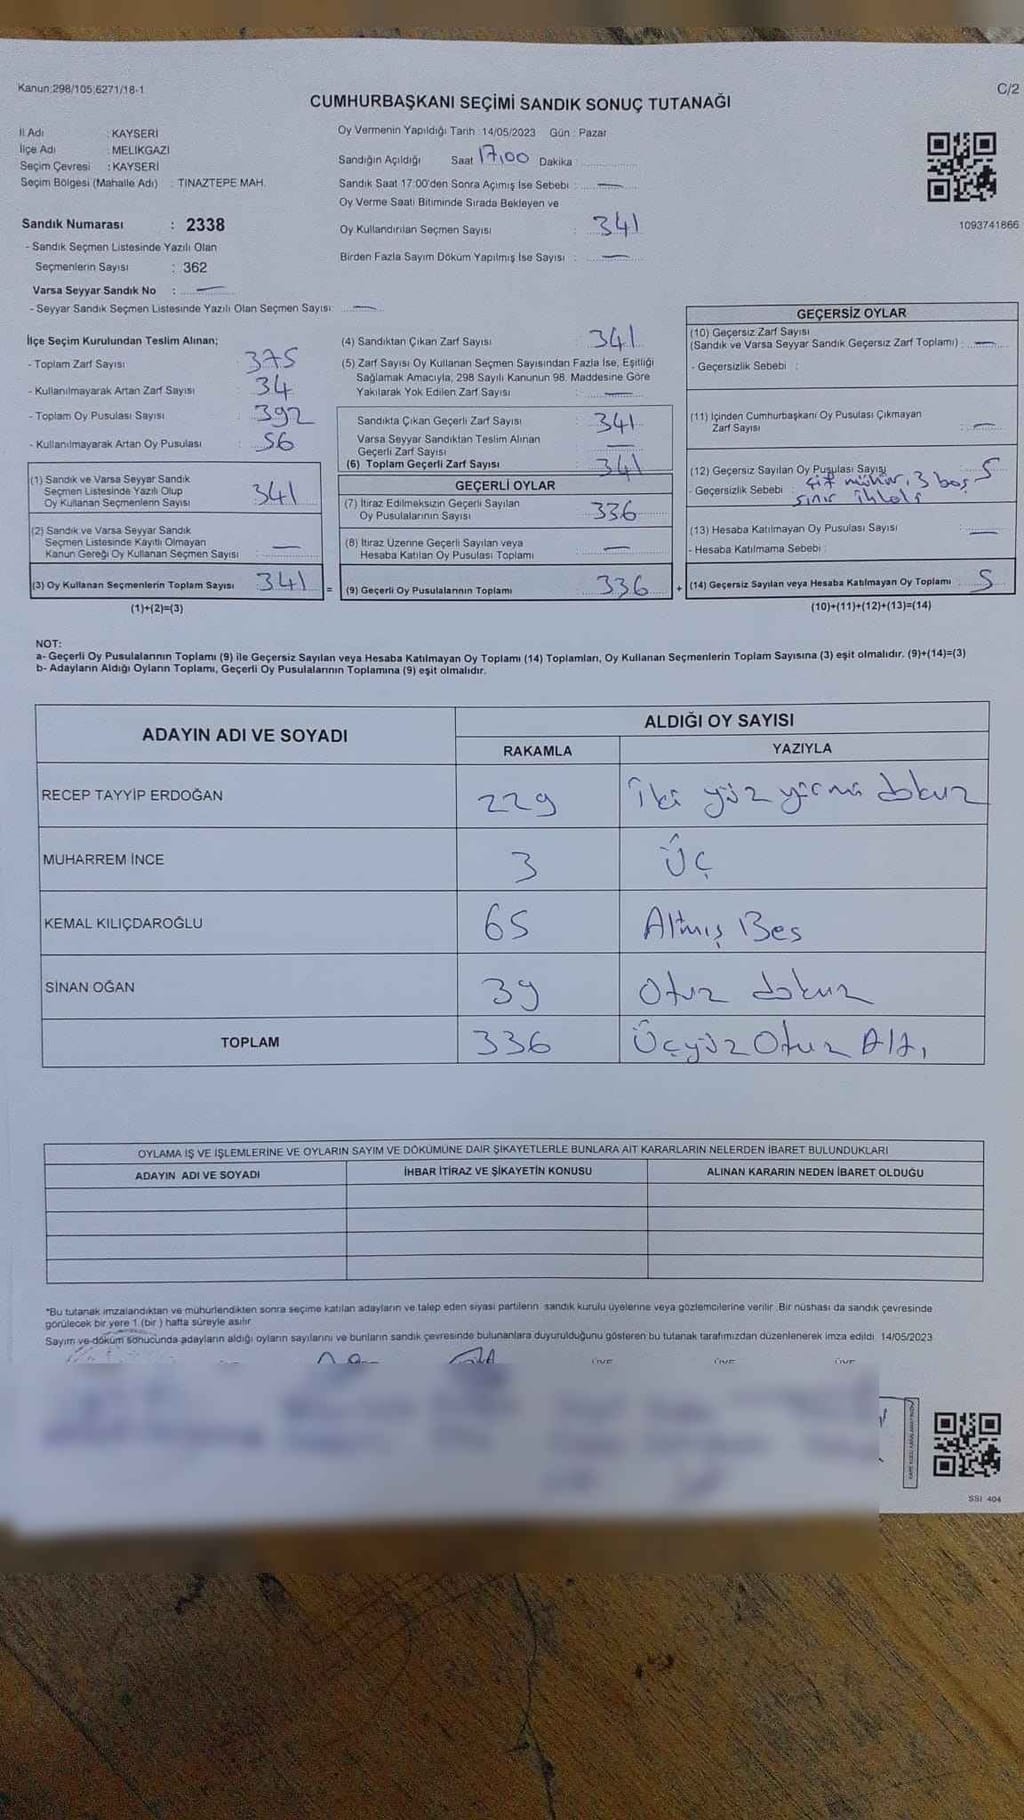 Kanun:298/105;6271/18-1
C/2
CUMHURBAŞKANI SEÇİMİ SANDIK SONUÇ TUTANAĞI
İl Adı : KAYSERİ
İlçe Adı : MELİKGAZİ
Seçim Çevresi : KAYSERİ
Seçim Bölgesi (Mahalle Adı) : TINAZTEPE MAH.
Oy Vermenin Yapıldığı Tarih :14/05/2023 Gün : Pazar
Sandığın Açıldığı Saat 17,00 Dakika :
Sandık Saat 17:00'den Sonra Açımış İse Sebebi : —
Oy Verme Saati Bitiminde Sırada Bekleyen ve
Oy Kullandırılan Seçmen Sayısı : 341
Birden Fazla Sayım Döküm Yapılmış İse Sayısı : —
1093741866
Sandık Numarası : 2338
- Sandık Seçmen Listesinde Yazılı Olan
Seçmenlerin Sayısı : 362
Varsa Seyyar Sandık No : —
- Seyyar Sandık Seçmen Listesinde Yazılı Olan Seçmen Sayısı: —
İlçe Seçim Kurulundan Teslim Alınan;
- Toplam Zarf Sayısı : 375
- Kullanılmayarak Artan Zarf Sayısı : 34
- Toplam Oy Pusulası Sayısı : 392
- Kullanılmayarak Artan Oy Pusulası : 56
(1) Sandık ve Varsa Seyyar Sandık
Seçmen Listesinde Yazılı Olup
Oy Kullanan Seçmenlerin Sayısı : 341
(2) Sandık ve Varsa Seyyar Sandık
Seçmen Listesinde Kayıtlı Olmayan
Kanun Gereği Oy Kullanan Seçmen Sayısı : —
(3) Oy Kullanan Seçmenlerin Toplam Sayısı : 341 =
(1)+(2)=(3)
(4) Sandıktan Çıkan Zarf Sayısı : 341
(5) Zarf Sayısı Oy Kullanan Seçmen Sayısından Fazla İse, Eşitliği
Sağlamak Amacıyla, 298 Sayılı Kanunun 98. Maddesine Göre
Yakılarak Yok Edilen Zarf Sayısı : —
Sandıkta Çıkan Geçerli Zarf Sayısı : 341
Varsa Seyyar Sandıktan Teslim Alınan
Geçerli Zarf Sayısı : —
(6) Toplam Geçerli Zarf Sayısı : 341
GEÇERLİ OYLAR
(7) İtiraz Edilmeksizin Geçerli Sayılan
Oy Pusulalarının Sayısı : 336
(8) İtiraz Üzerine Geçerli Sayılan veya
Hesaba Katılan Oy Pusulası Toplamı : —
(9) Geçerli Oy Pusulalarının Toplamı : 336 +
GEÇERSİZ OYLAR
(10) Geçersiz Zarf Sayısı
(Sandık ve Varsa Seyyar Sandık Geçersiz Zarf Toplamı) : —
- Geçersizlik Sebebi :
(11) İçinden Cumhurbaşkanı Oy Pusulası Çıkmayan
Zarf Sayısı : —
(12) Geçersiz Sayılan Oy Pusulası Sayısı : 5
- Geçersizlik Sebebi : çift mühür, 3 boş
sınır ihlali
(13) Hesaba Katılmayan Oy Pusulası Sayısı : —
- Hesaba Katılmama Sebebi :
(14) Geçersiz Sayılan veya Hesaba Katılmayan Oy Toplamı : 5
(10)+(11)+(12)+(13)=(14)
NOT:
a- Geçerli Oy Pusulalarının Toplamı (9) ile Geçersiz Sayılan veya Hesaba Katılmayan Oy Toplamı (14) Toplamları, Oy Kullanan Seçmenlerin Toplam Sayısına (3) eşit olmalıdır. (9)+(14)=(3)
b- Adayların Aldığı Oyların Toplamı, Geçerli Oy Pusulalarının Toplamına (9) eşit olmalıdır.
ADAYIN ADI VE SOYADI
ALDIĞI OY SAYISI
RAKAMLA YAZIYLA
RECEP TAYYİP ERDOĞAN 229 İki yüz yirmi dokuz
MUHARREM İNCE 3 Üç
KEMAL KILIÇDAROĞLU 65 Altmış Beş
SİNAN OĞAN 39 Otuz dokuz
TOPLAM 336 Üçyüz Otuz Altı
OYLAMA İŞ VE İŞLEMLERİNE VE OYLARIN SAYIM VE DÖKÜMÜNE DAİR ŞİKAYETLERLE BUNLARA AİT KARARLARIN NELERDEN İBARET BULUNDUKLARI
ADAYIN ADI VE SOYADI İHBAR İTİRAZ VE ŞİKAYETİN KONUSU ALINAN KARARIN NEDEN İBARET OLDUĞU
*Bu tutanak imzalandıktan ve mühürlendikten sonra seçime katılan adayların ve talep eden siyasi partilerin sandık kurulu üyelerine veya gözlemcilerine verilir. Bir nüshası da sandık çevresinde
görülecek bir yere 1 (bir ) hafta süreyle asılır.
Sayım ve döküm sonucunda adayların aldığı oyların sayılarını ve bunların sandık çevresinde bulunanlara duyurulduğunu gösteren bu tutanak tarafımızdan düzenlenerek imza edildi. 14/05/2023
ÜYE ÜYE ÜYE
SSİ 404